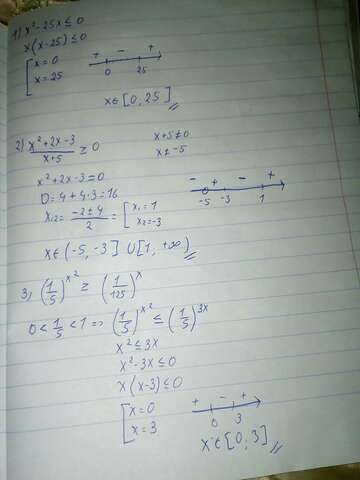 1) x²-25x ≤ 0
x(x-25) ≤ 0
[ x = 0
x = 25
+ - +
0 25
x ∈ [0, 25]
2) x²+2x-3 / x+5 ≥ 0
x+5 ≠ 0
x ≠ -5
x²+2x-3=0
D = 4+4·3=16
x₁,₂ = -2±4 / 2 = [ x₁ = 1
x₂ = -3
- + - +
-5 -3 1
x ∈ (-5, -3] ∪ [1, +∞)
3) (1/5)^x² ≥ (1/125)^x
0 < 1/5 < 1 => (1/5)^x² ≤ (1/5)^3x
x² ≤ 3x
x²-3x ≤ 0
x(x-3) ≤ 0
[ x = 0
x = 3
+ - +
0 3
x ∈ [0; 3]